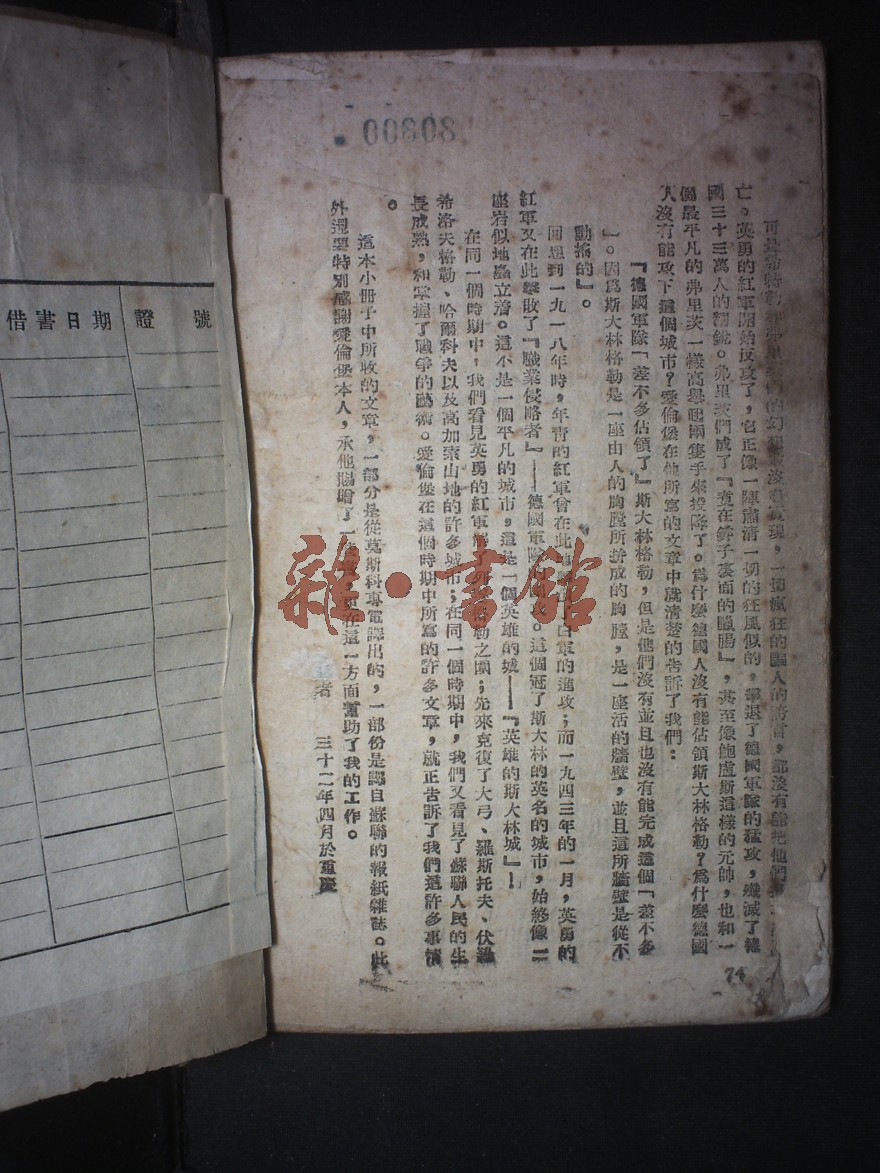 00308
可是希特勒和弗里茨們的幻想沒有實現，一切瘋狂的騙人的謊言，都沒有能把他們
亡。英勇的紅軍開始反攻了，它正像一陣肅清一切的狂風似的，擊退了德國軍隊的猛攻，殲滅了德
國三十三萬人的精銳。弗里茨們成了『煮在鍋子裏面的臘腸』，甚至像鮑盧斯這樣的元帥，也和一
個最平凡的弗里茨一樣高舉起兩隻手來投降了。爲什麼德國人沒有能佔領斯大林格勒？爲什麼德國
人沒有能攻下這個城市？愛倫堡在他所寫的文章中就清楚的告訴了我們：
『德國軍隊「差不多佔領了」斯大林格勒，但是他們沒有並且也沒有能完成這個「差不多
」。因爲斯大林格勒是一座由人的胸膛所拼成的胸膛，是一座活的牆壁，並且這所牆壁是從不
動搖的』。
回想到一九一八年時，年青的紅軍曾在此地擊退了白軍的進攻；而一九四三年的一月，英勇的
紅軍又在此擊敗了『職業侵略者』——德國軍隊的圍攻。這個冠了斯大林的英名的城市，始終像一
座岩似地矗立着。這不是一個平凡的城市，這是一個英雄的城——『英雄的斯大林城』！
在同一個時期中，我們看見英勇的紅軍解了列寧格勒之圍；先來克復了大弓、羅斯托夫、伏羅
希洛夫格勒、哈爾科夫以及高加索山地的許多城市；在同一個時期中，我們又看見了蘇聯人民的生
長成熟，和掌握了戰爭的藝術。愛倫堡在這個時期中所寫的許多文章，就正告訴了我們這許多事情
。
這本小冊子中所收的文章，一部分是從莫斯科專電譯出的，一部份是譯自蘇聯的報紙雜誌。此
外還要特別感謝愛倫堡本人，承他賜贈了一 在這一方面幫助了我的工作。
者 三十二年四月於重慶
74
借書日期 證號
雜·書館